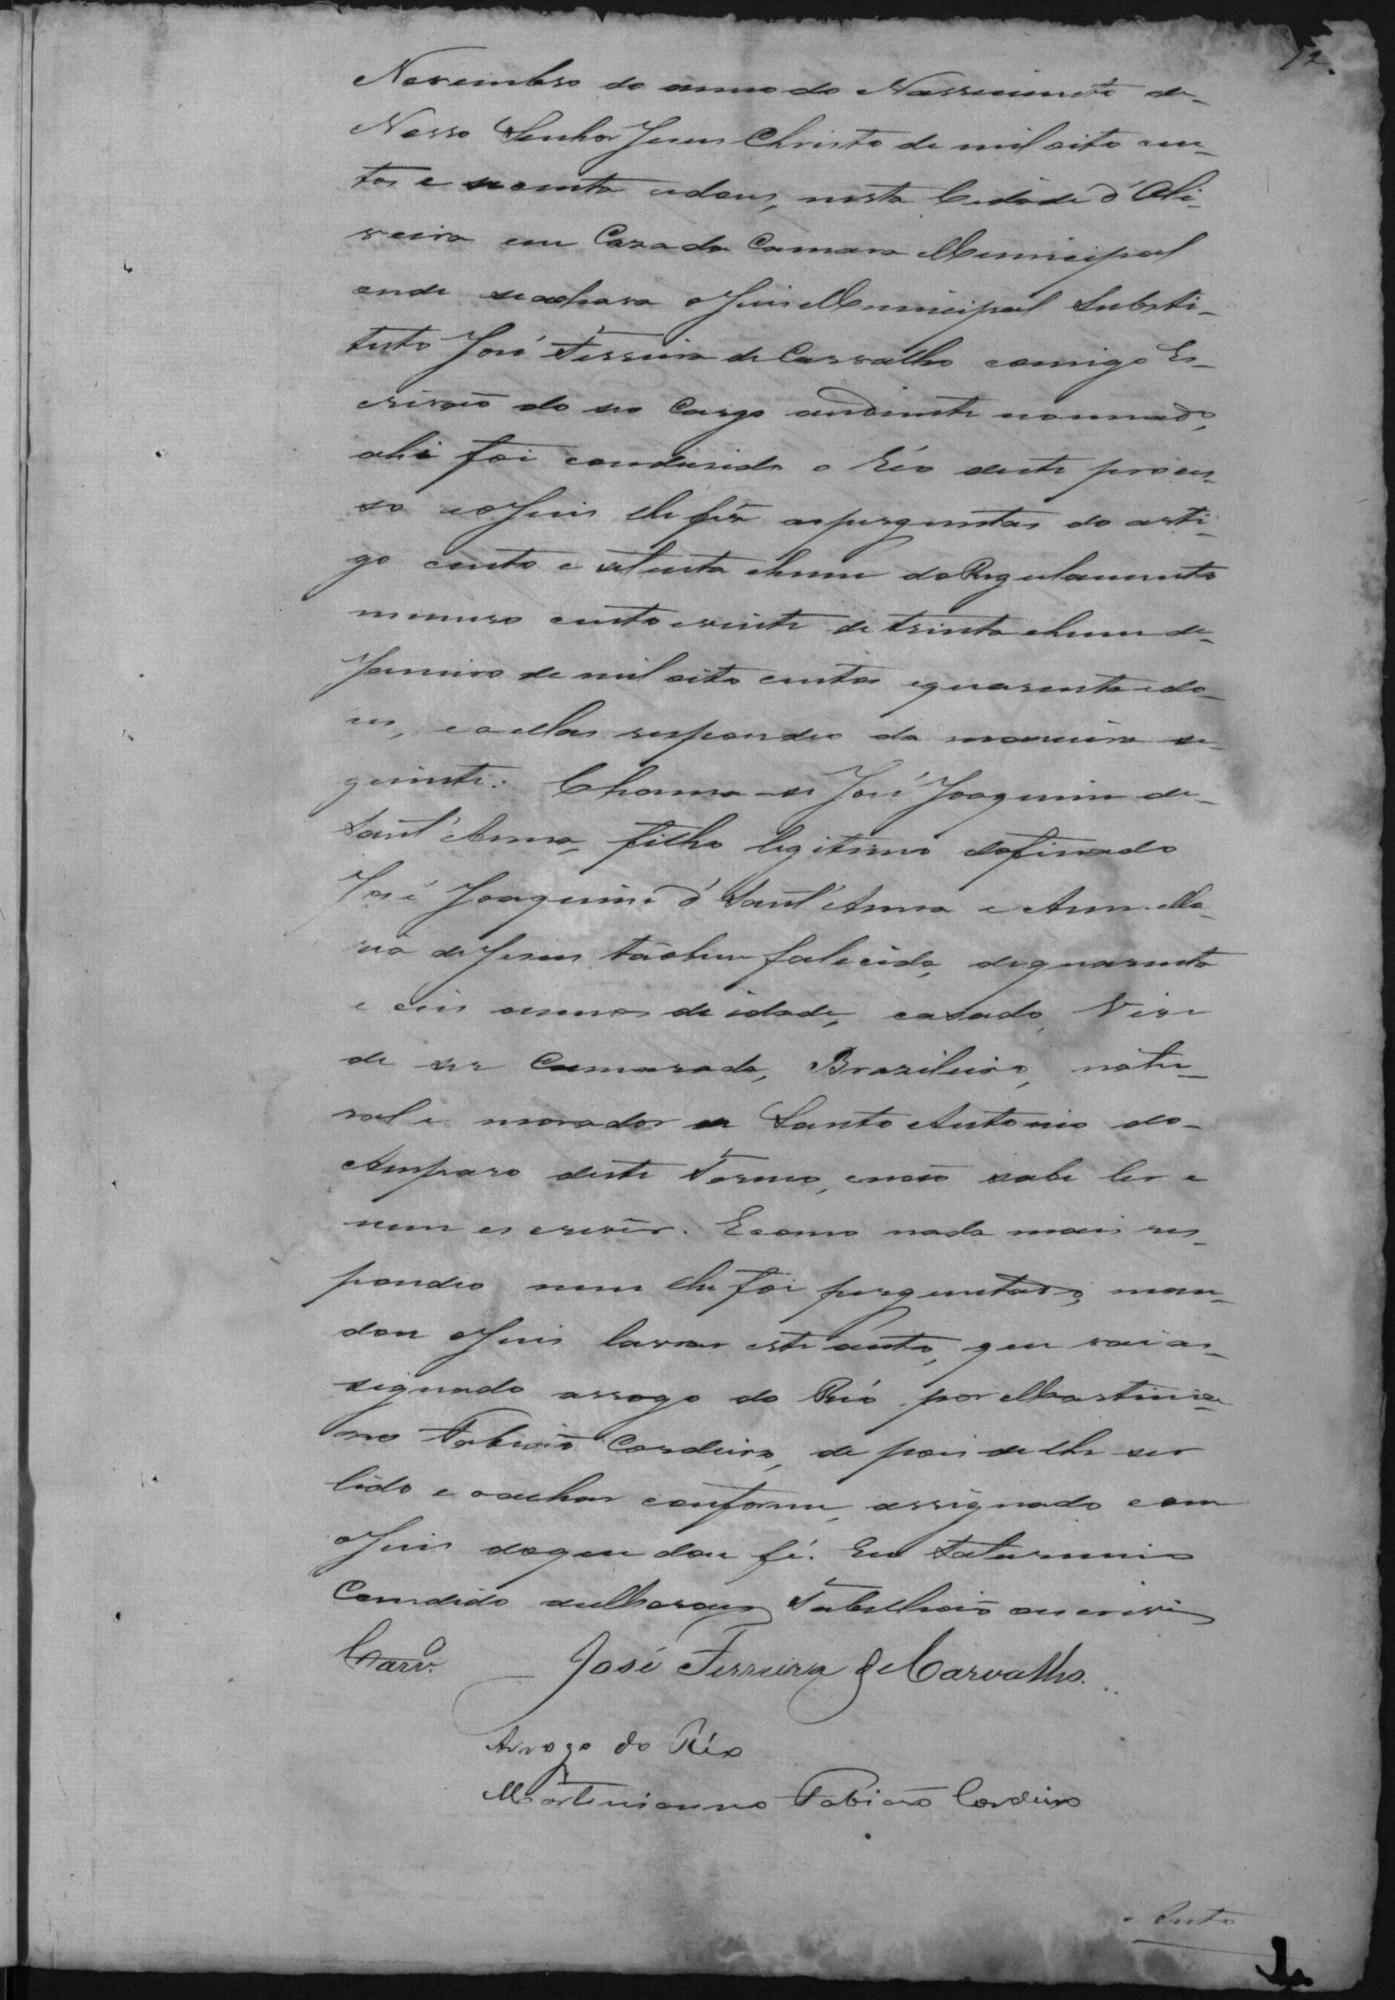 12.
Novembro do anno do Nassimento de-
Nosso Senhor Jesus Christo de mil oito cen-
tos e secenta edous, nesta Cidade d'Oli-
veira em Caza da Camara Municipal
onde seachava o Juis Municipal Substi-
tuto José Ferreira de Carvalho comigo Es-
crivaõ do seo Cargo aodiante nomeado,
ahi foi condusido o Réo deste proces-
so eo Juis lhe fes asperguntas do arti-
go cento e setenta ehum do Regulamento
numero cento evinte de trinta ehum de-
Janeiro de mil oito centos equarenta edo-
us, e aellas respondeo da maneira se-
guinte: Chama-se José Joaquim de-
Sant'Anna, filho legitimo dofinado
José Joaquim d'Sant'Anna e Anna Ma-
ria de Jesus taõbem falecida, dequarenta
e ceis annos de idade, casado, Vive
de ser Camarada, Brazileiro, natu-
ral e morador em Santo Antonio do-
Amparo deste Termo, enaõ sabe ler e
nem escrever. Ecomo nada mais res-
pondeo nem lhe foi perguntado, man-
dou oJuis lavrar este auto, que vai as-
signado arrogo do Réo por Martinia-
no Fabiaõ Cordeiro, de pois delhe ser
lido e oachar conforme, assignado com
oJuis doque dou fé. Eu Saturnino
Candido Tabelliaõ oescrevi
Carv.º José Ferreira de Carvalho.
Arrogo do Réo
Martinianno Fabiaõ Cordeiro
Auto